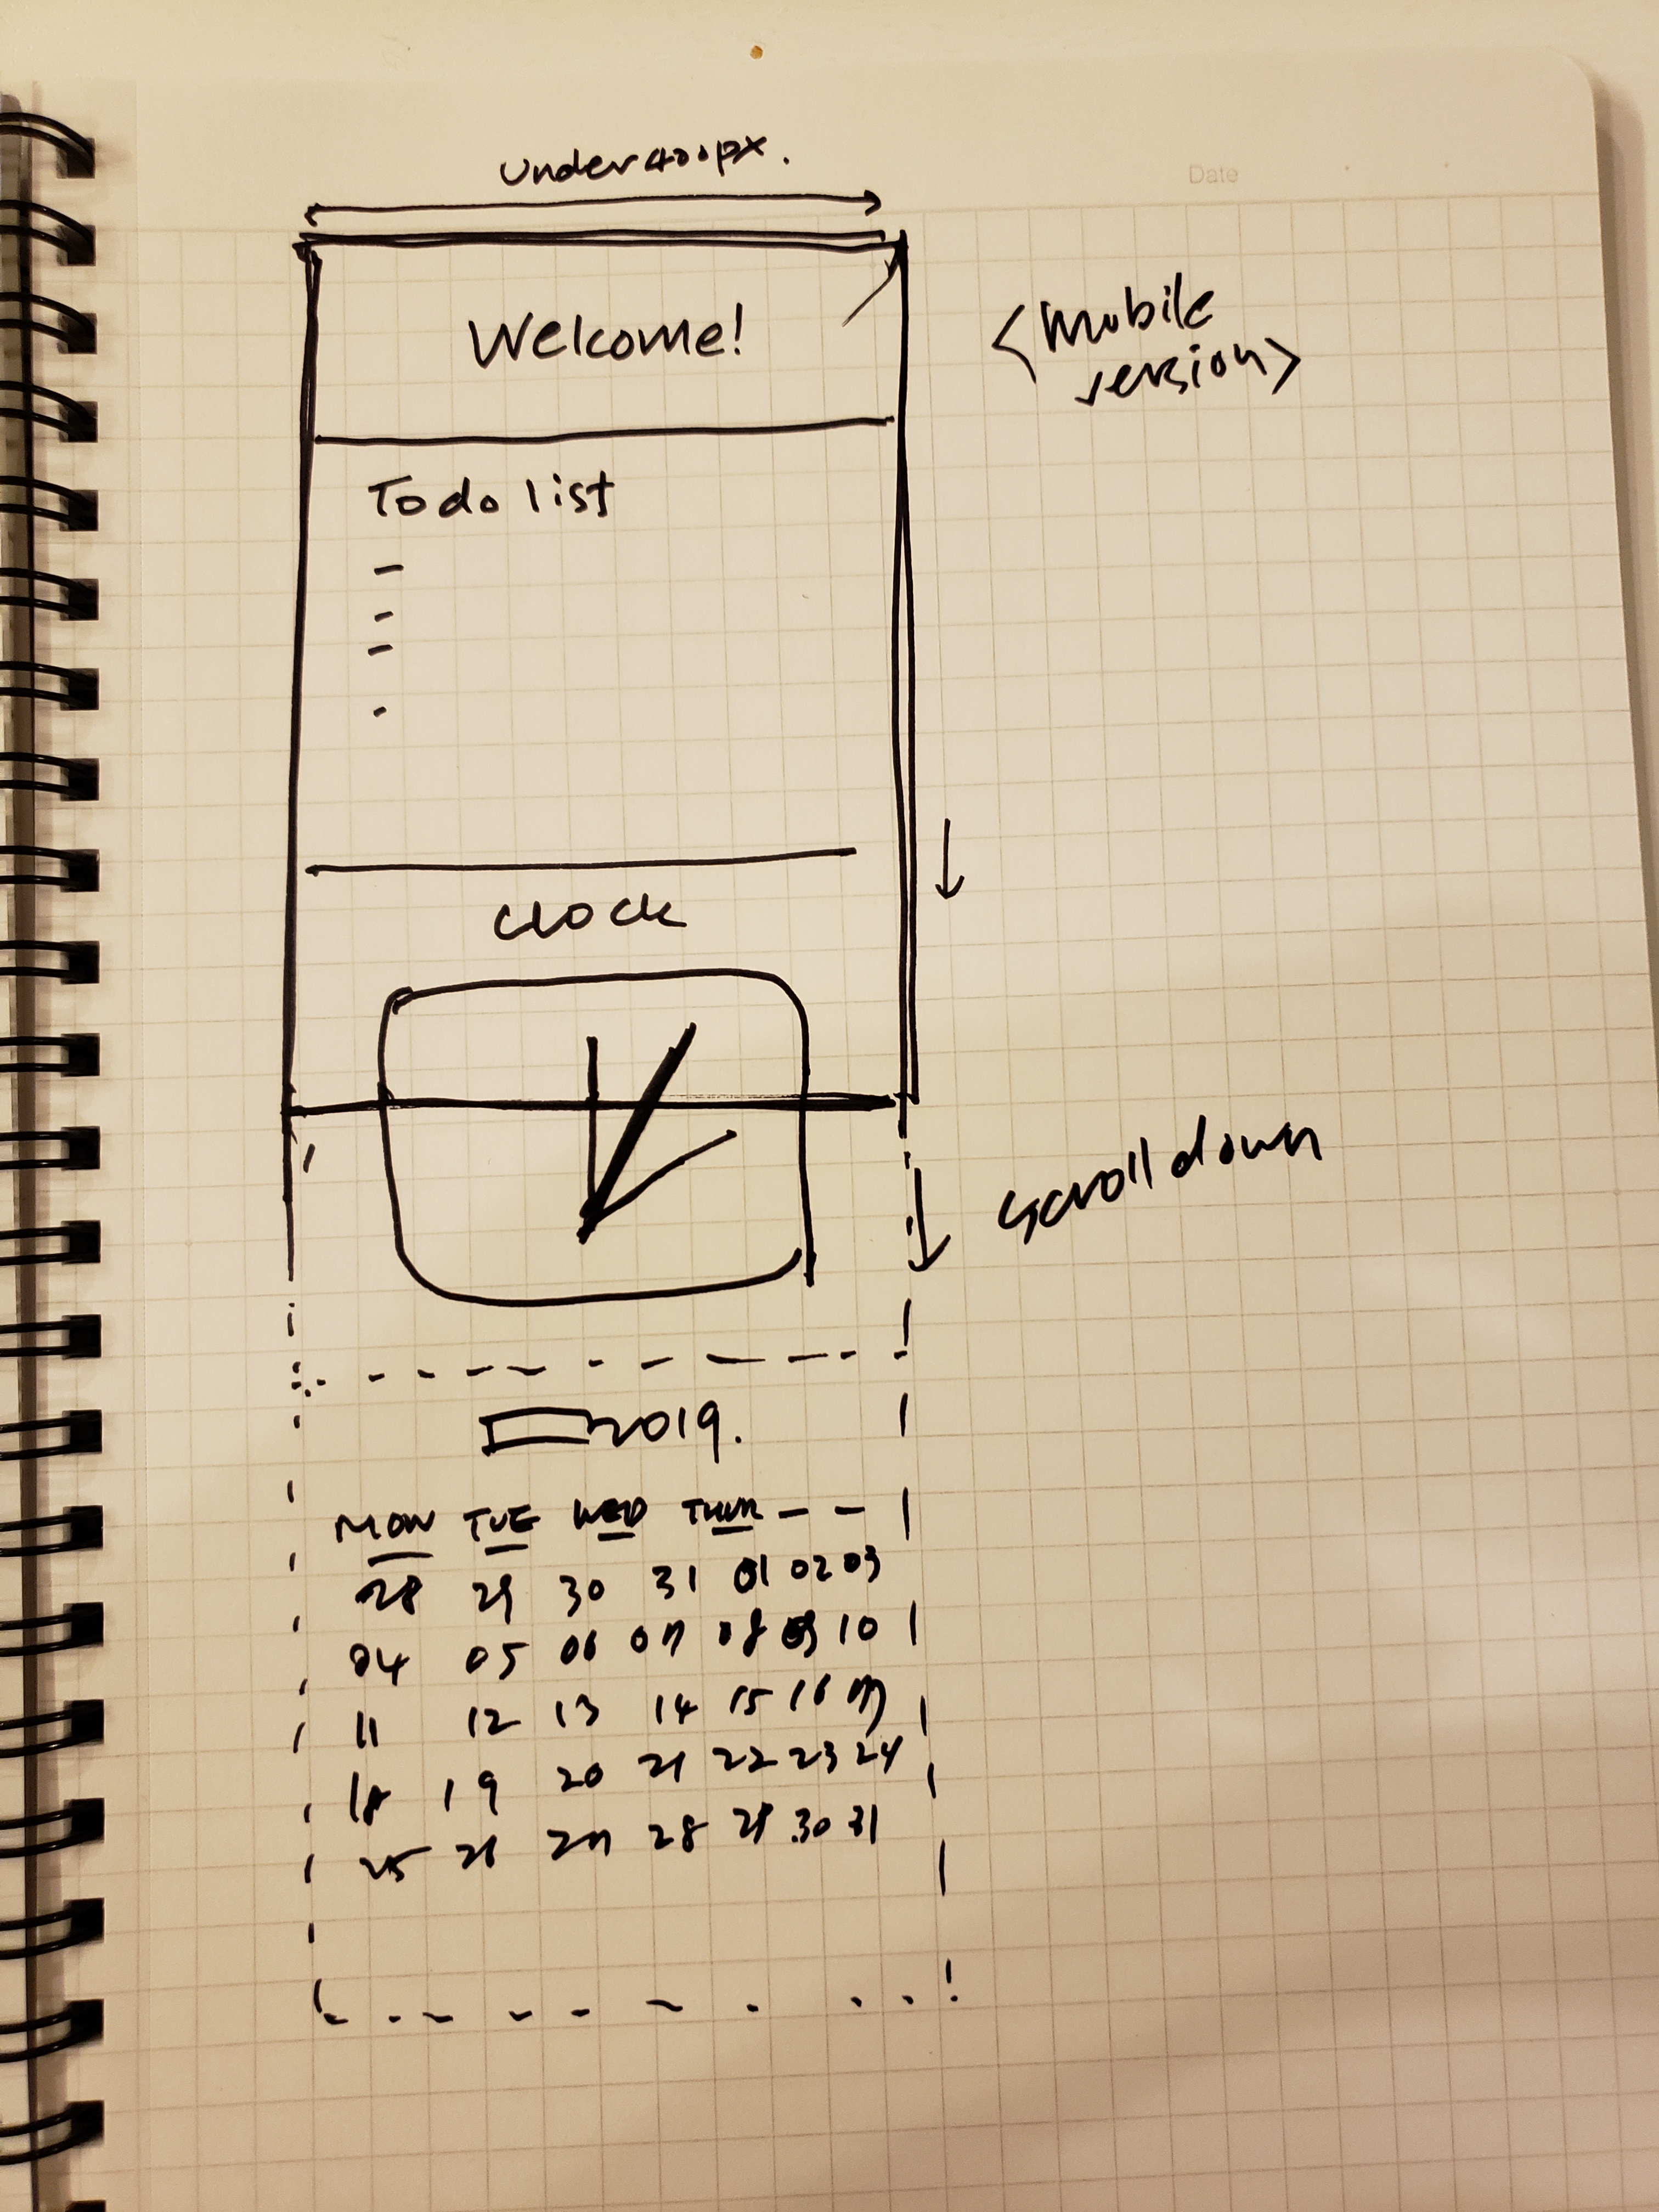 Under 400px.
Date
Welcome!
<Mobile
version>
Todo list
-
-
-
-
Clock
Scroll down
2019.
MON TUE WED THUR - -
28 29 30 31 01 02 03
04 05 06 07 08 09 10
11 12 13 14 15 16 17
18 19 20 21 22 23 24
25 26 27 28 29 30 31